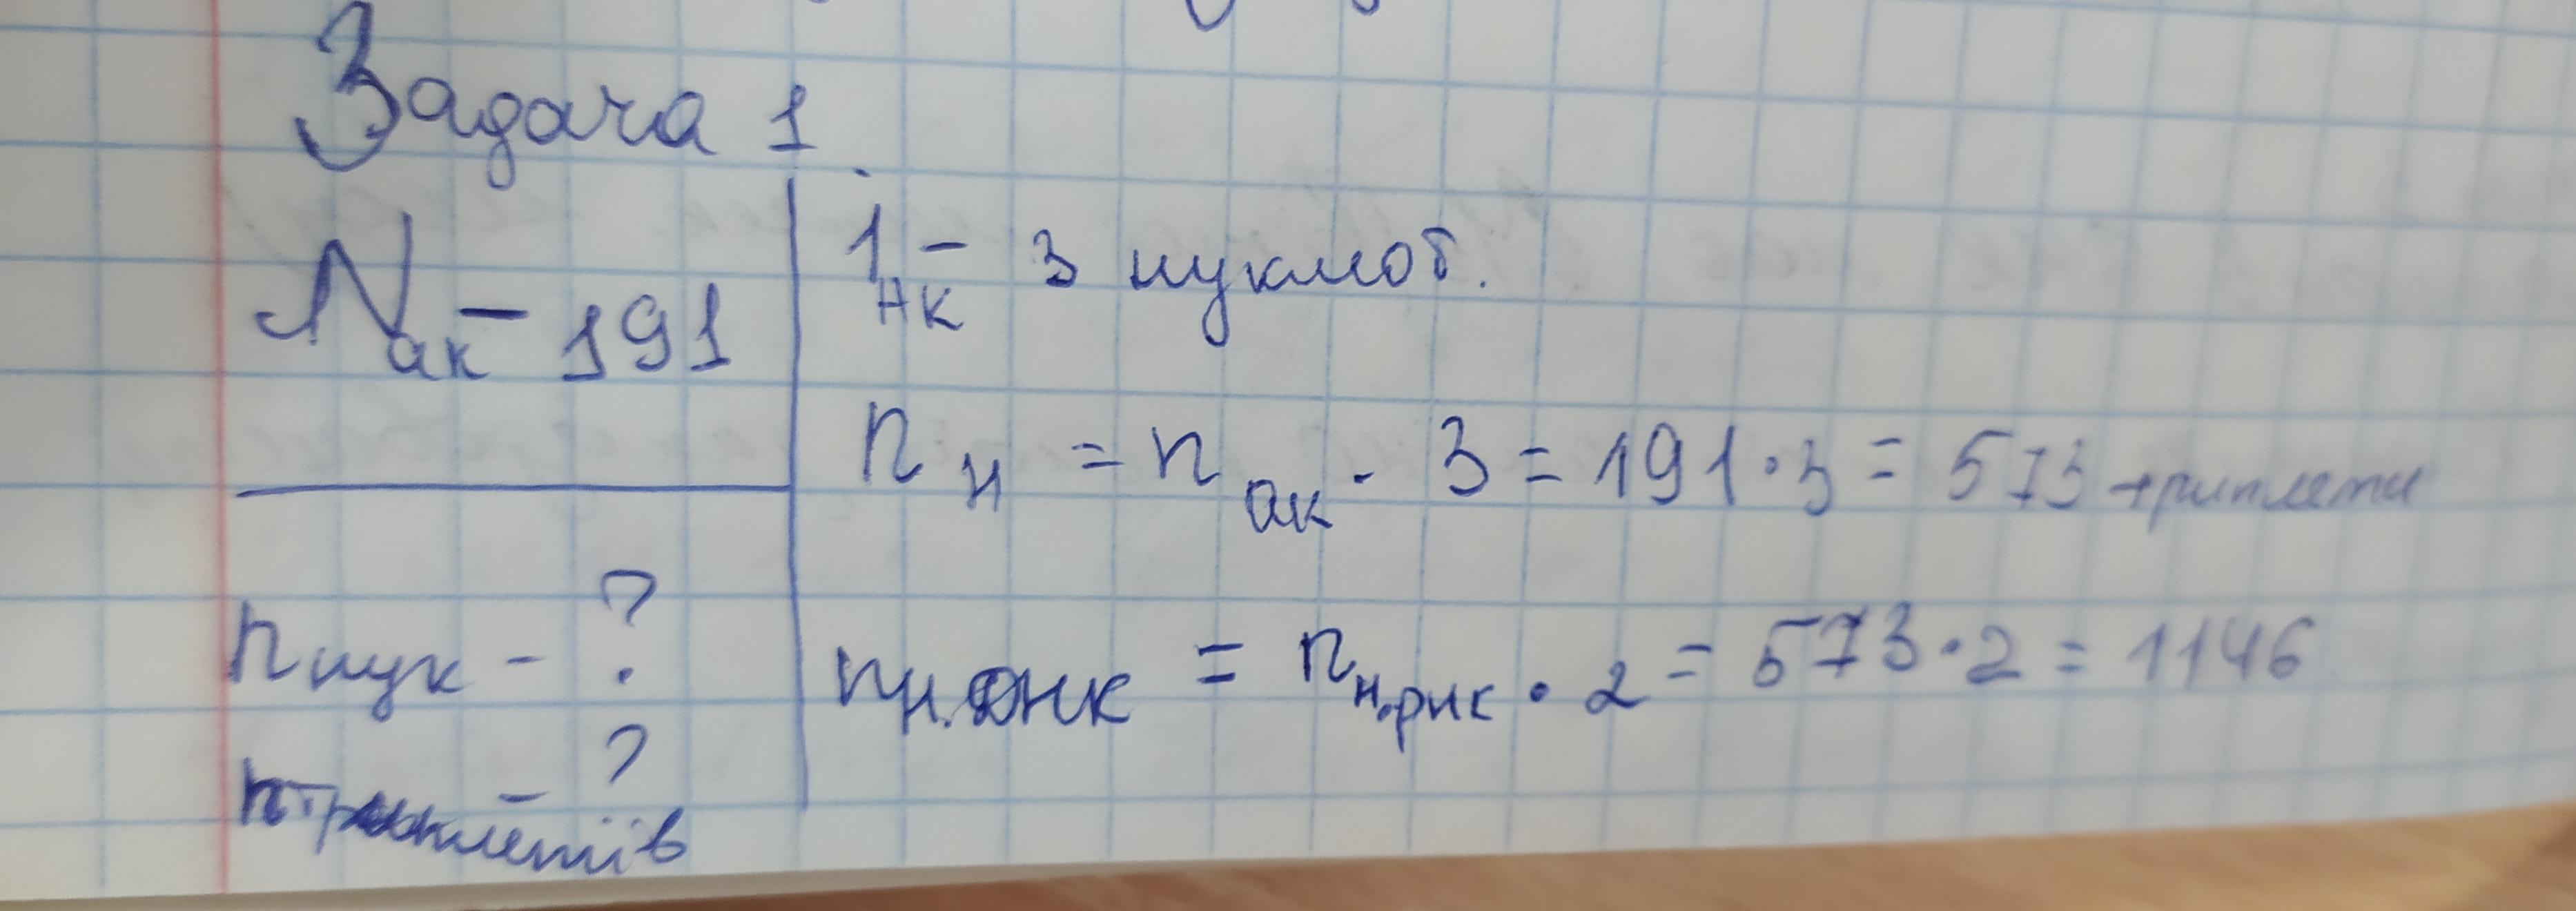 Задача 1
Nак – 191
nнук – ?
nтриплетів – ?
1 АК – 3 нуклеот.
nн = nак · 3 = 191 · 3 = 573 триплети
nн.днк = nн.рнк · 2 = 573 · 2 = 1146